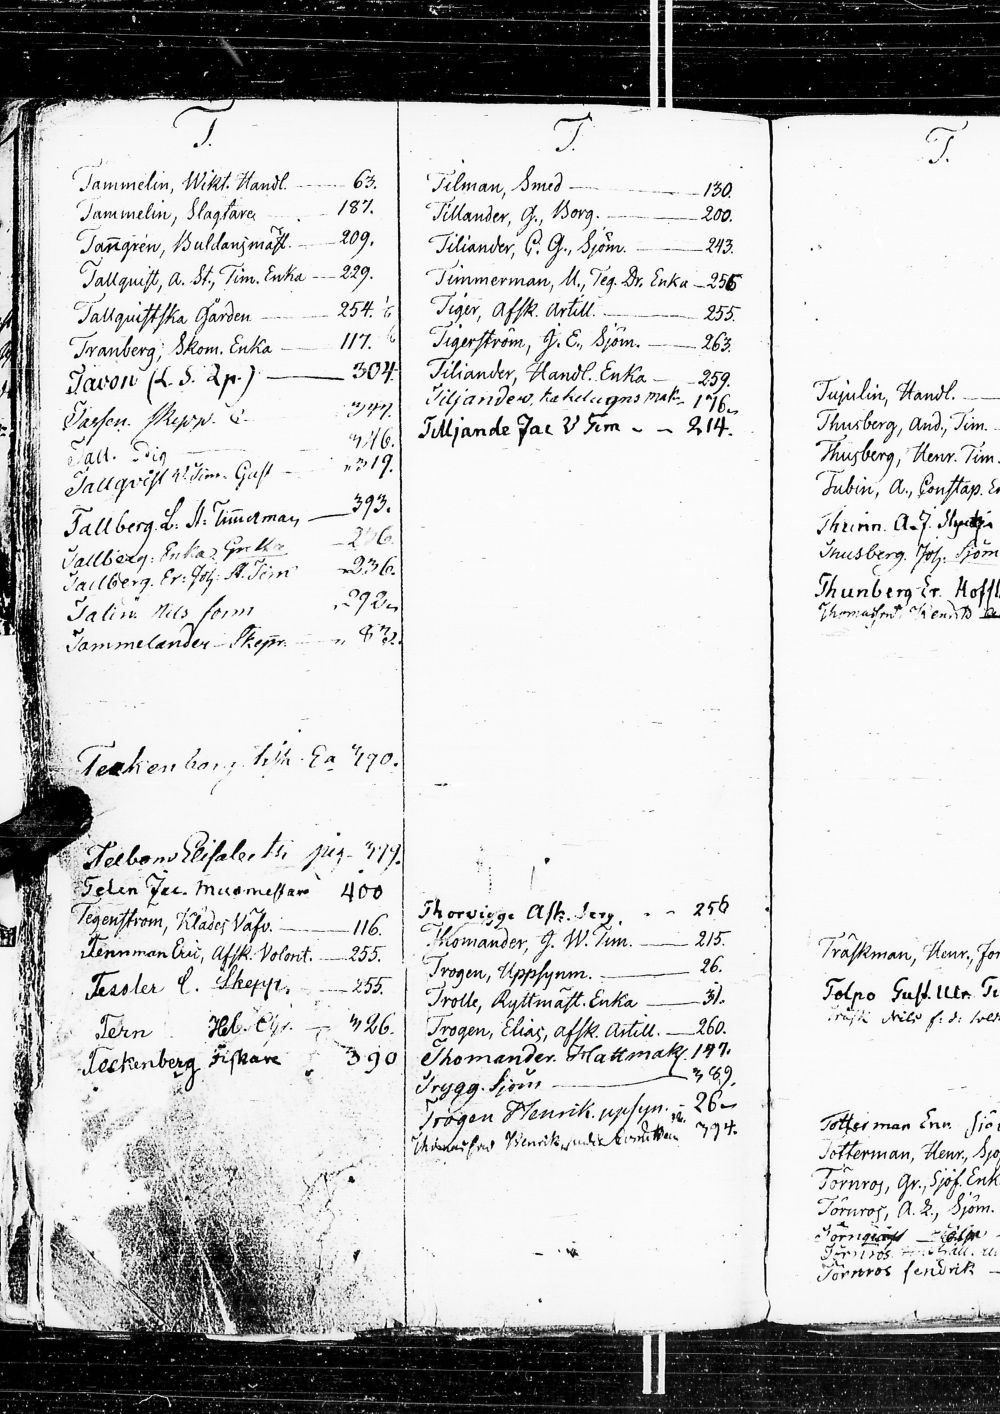 T.
Tammelin, Wikt. Handl. 63.
Tammelin, Slagtare 187.
Tan̄grén, Buldansmäst. 209.
Tallquist, A. St., Tim. Enka 229.
Tallquistska Gården 254.
Tranberg, Skom. Enka 117.
Tavon (L. S. Qp.) 304
Tassen. Skepp. 347.
Tall. Pig 346.
Tallqvist Tim. Gust 319.
Tallberg. L: A: Timerman 393.
Tallberg: Enka Greta 236.
Tallberg. Er: Joh: A. Tim 236.
Talin. Nils 292
Tammelander Skepr. 83
Teckenberg Ea 390.
Elisabet pig 377.
Telen Jac. Murmestare 400
Tegenström, Klädes Väfv. 116.
Tennman Eric, Afsk. Volont. 255.
Tesoler C. Skepp. 255.
Tern 326.
Teckenberg Fiskare 390
T.
Tilman, Smed 130.
Tillander, G., Borg. 200.
Tiliander, C. G., Sjöm. 243.
Timmerman, M., Teg. Dr. Enka 256
Tiger, Afsk. Artill. 255.
Tigerström, G. E., Sjöm. 263.
Tiliander, Handl. Enka 259.
Tiljander, kakelugns mak. 176
Tilljande Jac V Tim 214.
Thorvigge Afsk. Serg. 256
Thomander, G. W. Tim. 215.
Trogen, Uppsynm. 26.
Trolle, Ryttmäst. Enka 31.
Trogen, Elias, Afsk. Artill. 260.
Thomander. Hattmak. 147.
Trygg. Sjöm 389.
Trogen Henrik. upsyn. 26
Henrik 394.
T.
Tujulin, Handl.
Thusberg, And., Tim.
Thusberg, Henr. Tim.
Tubin, A., Constap. En
Thurin. A. J.
Thusberg. Joh. Sjöm
Thunberg Er. Hoff
Träskman, Henr., For
Tolpo Gust. Ulr. Ti
Nils
Totterman Enn Sjö
Totterman, Henr., Sjö
Törnros, Gr., Sjöf. Enk
Törnros, A. L., Sjöm.
Törnqvist
Törnros
Törnros fendrik